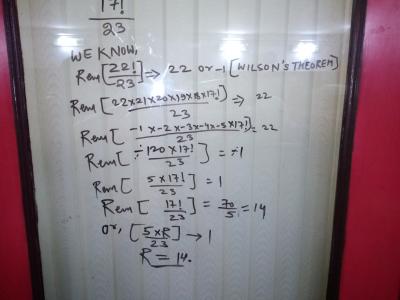 17!
23
WE KNOW,
Rem[22!/23] ⇒ 22 or -1 [WILSON'S THEOREM]
Rem[22×21×20×19×18×17!/23] ⇒ 22
Rem[-1×-2×-3×-4×-5×17!/23] = 22
Rem[÷120×17!/23] = ÷1
Rem[5×17!/23] = 1
Rem[17!/23] = 70/5 = 14
or, [5×R/23] → 1
R = 14.